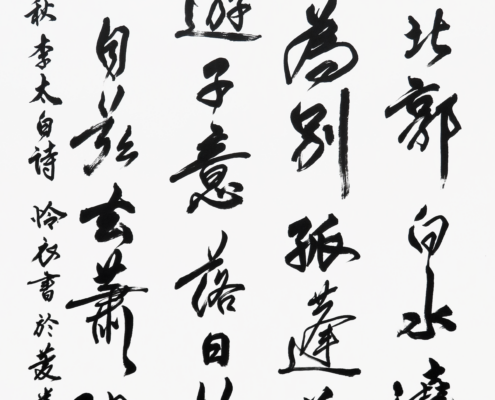 北郭白水
為別孤蓬
遊子意落日
自茲去蕭
秋李太白詩 書於